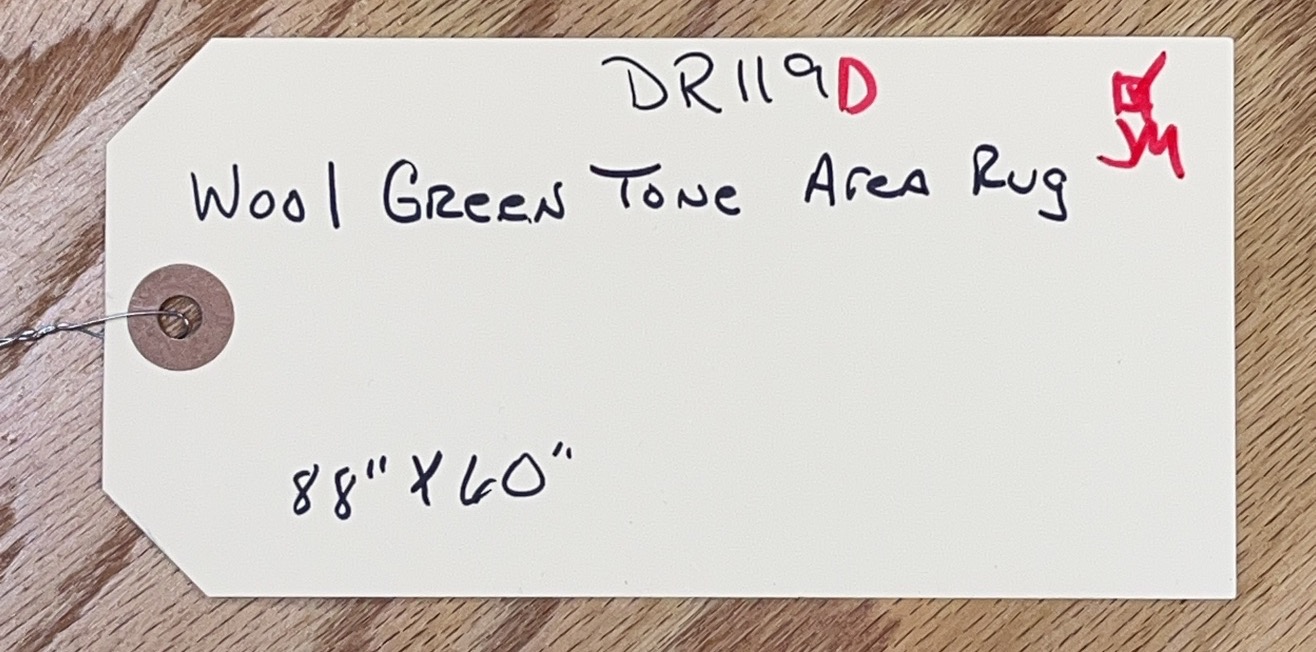 DR119D
Wool Green Tone Area Rug
JM
88" X 60"